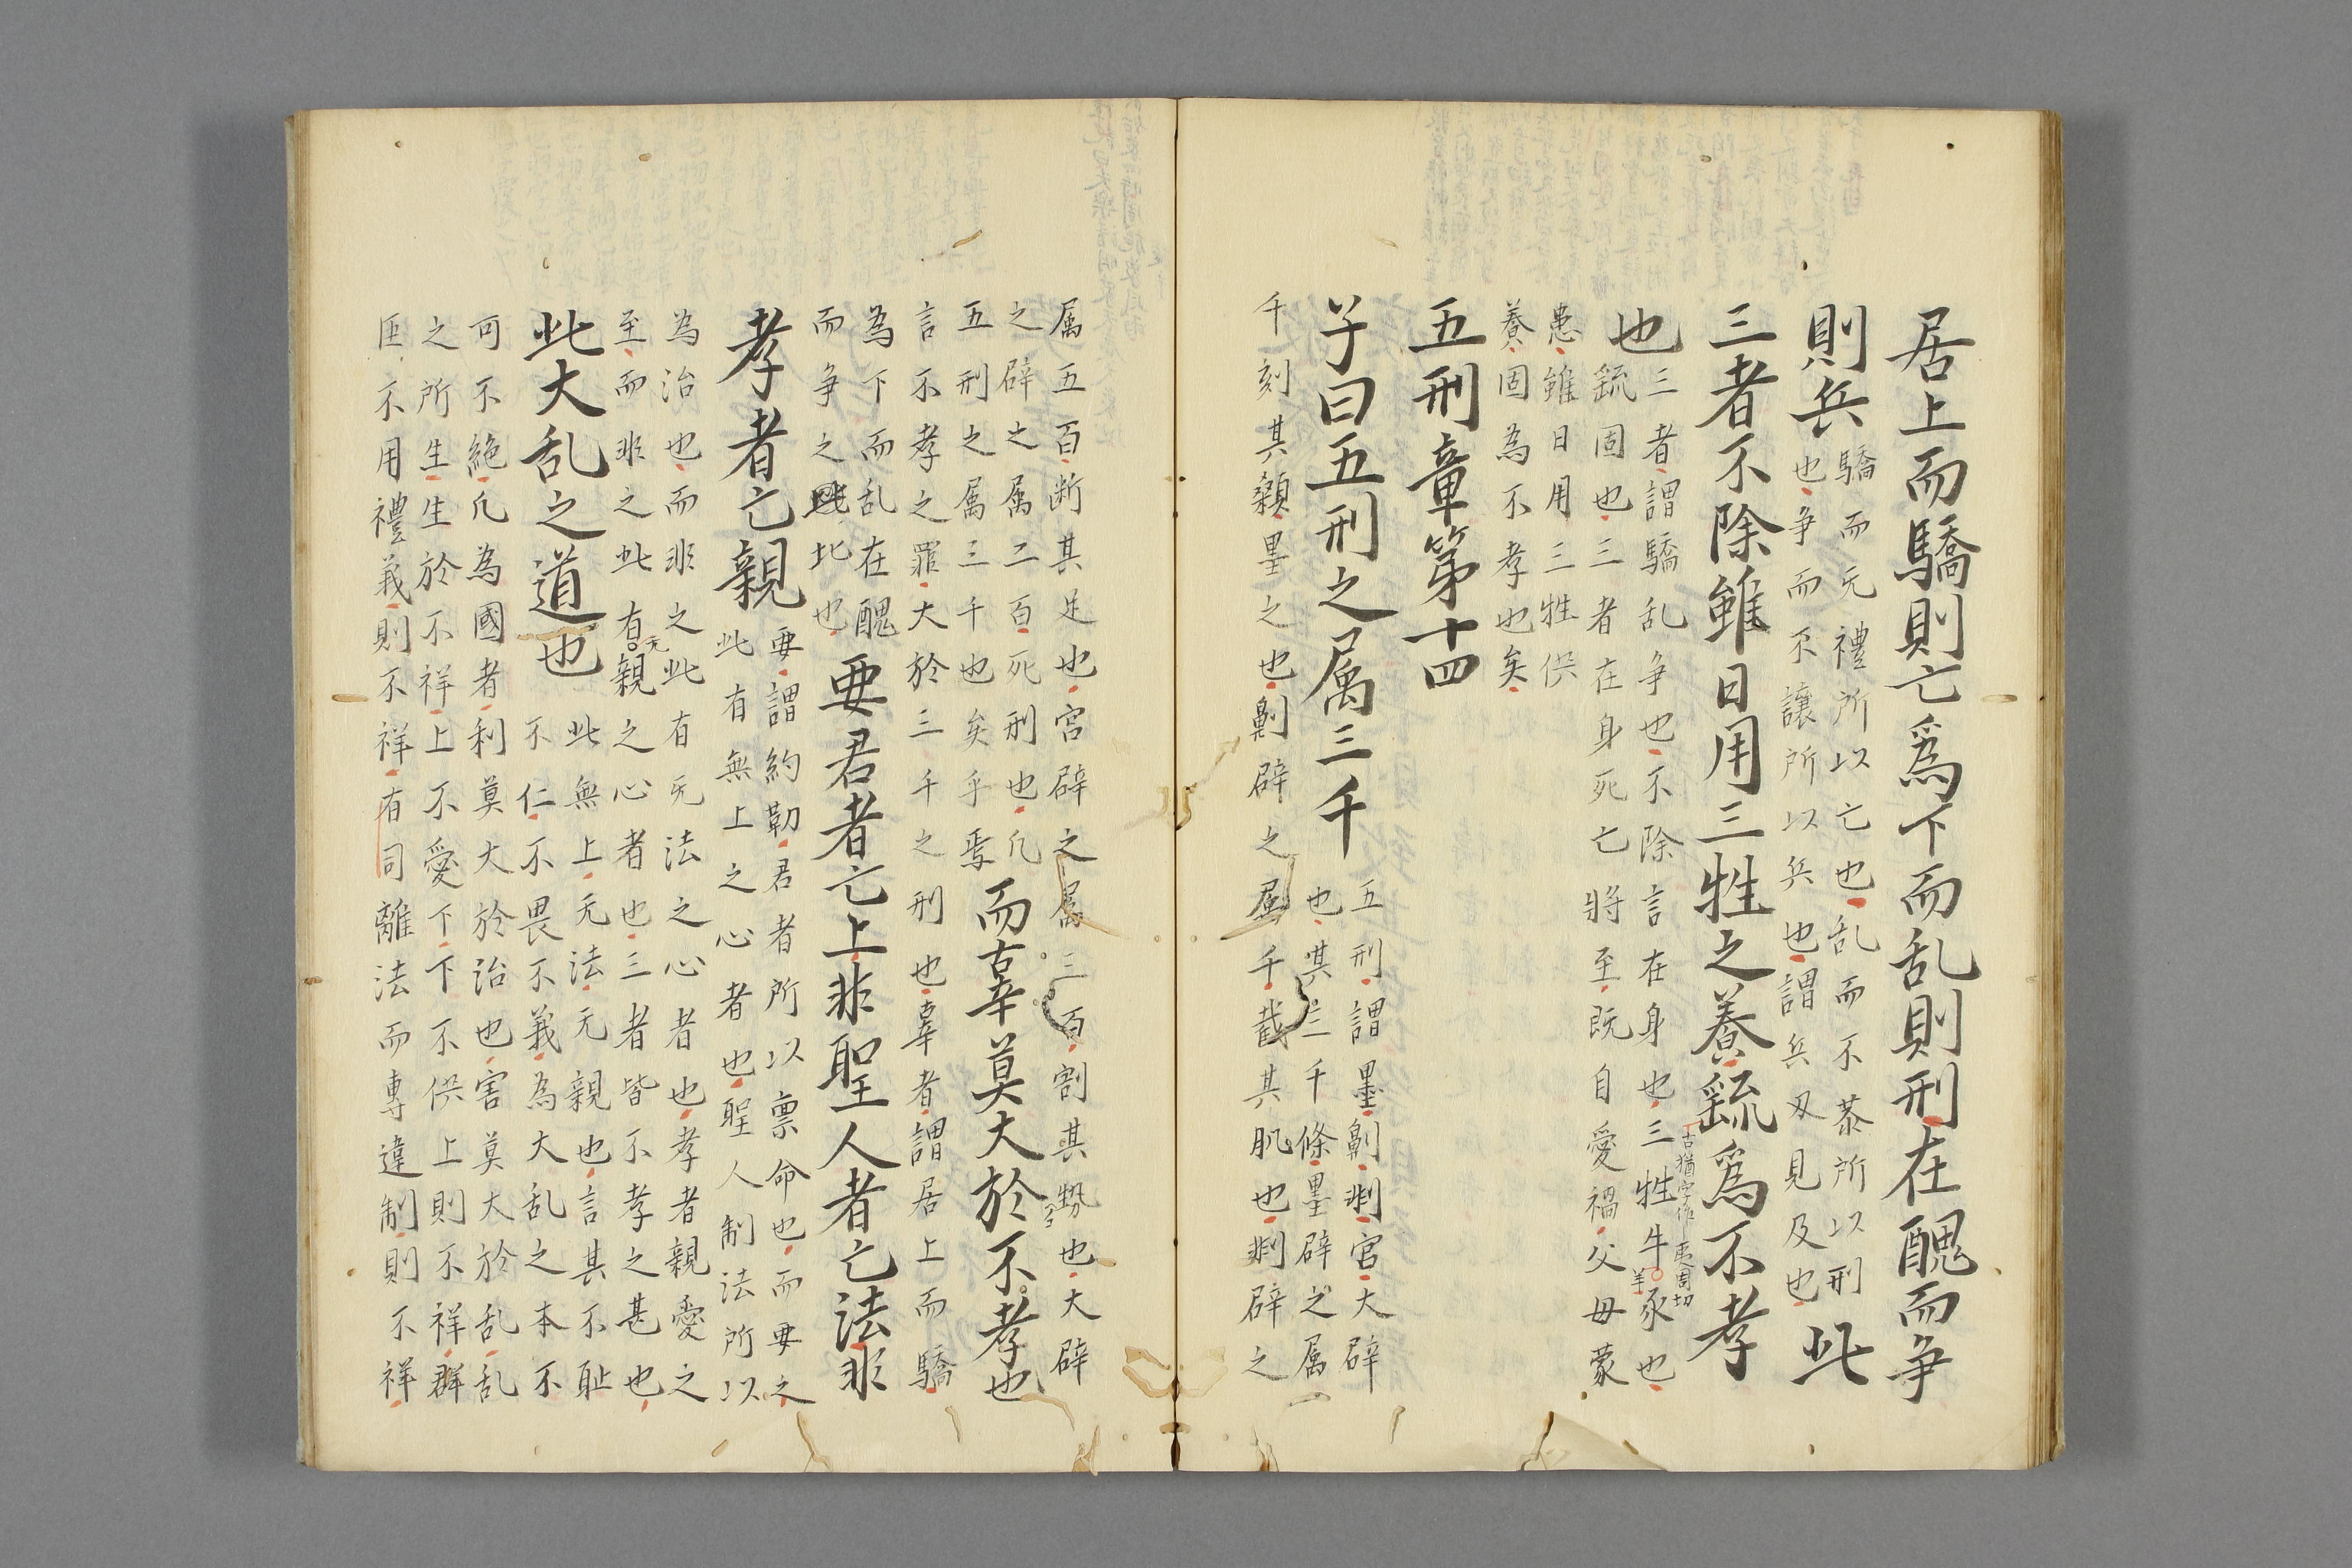 居上而驕則亡爲下而乱則刑在醜而争
則兵
驕而无禮所以亡亡也乱而不恭所以刑
也争而不譲所以兵也也謂兵刃見及也
此
三者不除雖日用三牲之養繇爲不孝
古猶字作繇夷周切
也
三者謂驕乱争也不除言在身也三牲牛羊豕也
繇固也三者在身死亡將至既自愛禍父母蒙
患雖日用三牲供
養固為不孝也矣
五刑章第十四
子曰五刑之属三千
五刑謂墨劓剕宮大辟
也其三千條墨辟之属
千刻其顙墨之也劓辟之属千截其肌也剕辟之
属五百断其足也宮辟之属三百割其勢也大辟
之辟之属二百死刑也凡
五刑之属三千也矣乎焉
而辠莫大於不孝也
言不孝之罪大於三千之刑也辠者謂居上而驕
為下而乱在醜
而争之比也
要君者亡上非聖人者亡法非
孝者亡親
要謂約勒君者所以禀命也而要之
此有無上之心者也聖人制法所以
為治也而非之此有无法之心者也孝者親愛之
至而非之此有无親之心者也三者皆不孝之甚也
此大乱之道也
此無上无法无親也言其不恥
不仁不畏不義為大乱之本不
可不絶凡為國者利莫大於治也害莫大於乱乱
之所生生於不祥上不愛下下不供上則不祥群
臣不用禮義則不祥有司離法而專違制則不祥